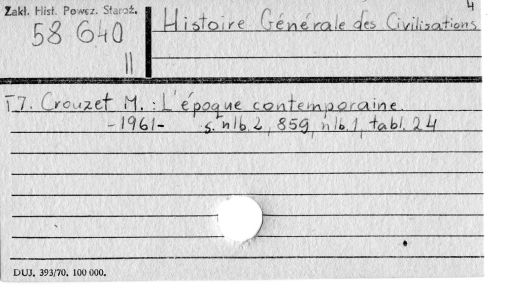 4
Zakł. Hist. Powsz. Staroż.
Histoire Générale des Civilisations
58 640
II
T7. Crouzet M.: L'époque contemporaine.
-1961- s. nlb. 2, 859, nlb. 1, tabl. 24
DUJ. 393/70. 100 000.